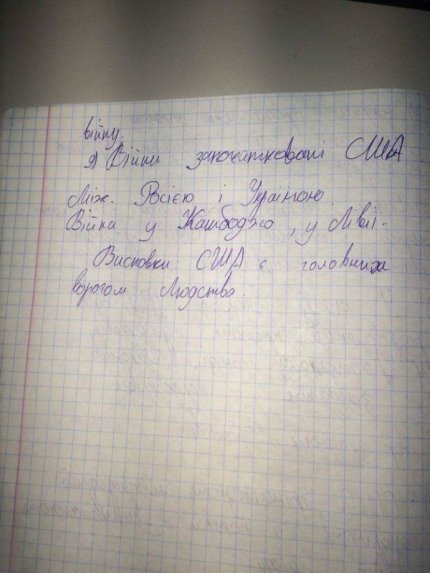 війну.
Війни започатковані США
Між. Росією і Україною.
Війна у Камбоджю, у Лівії.
Висновки США є головним
ворогом Людства.